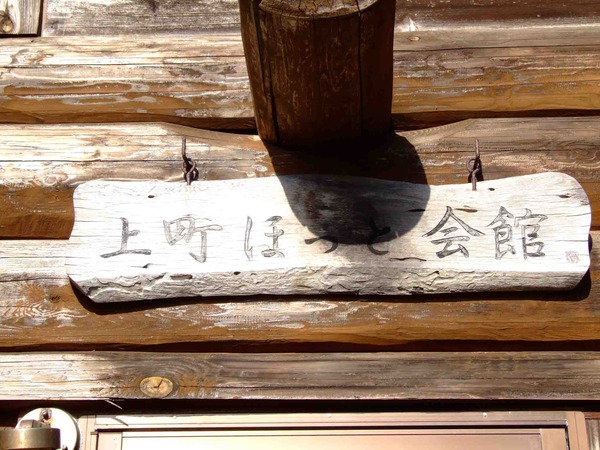 上町ほっと会館